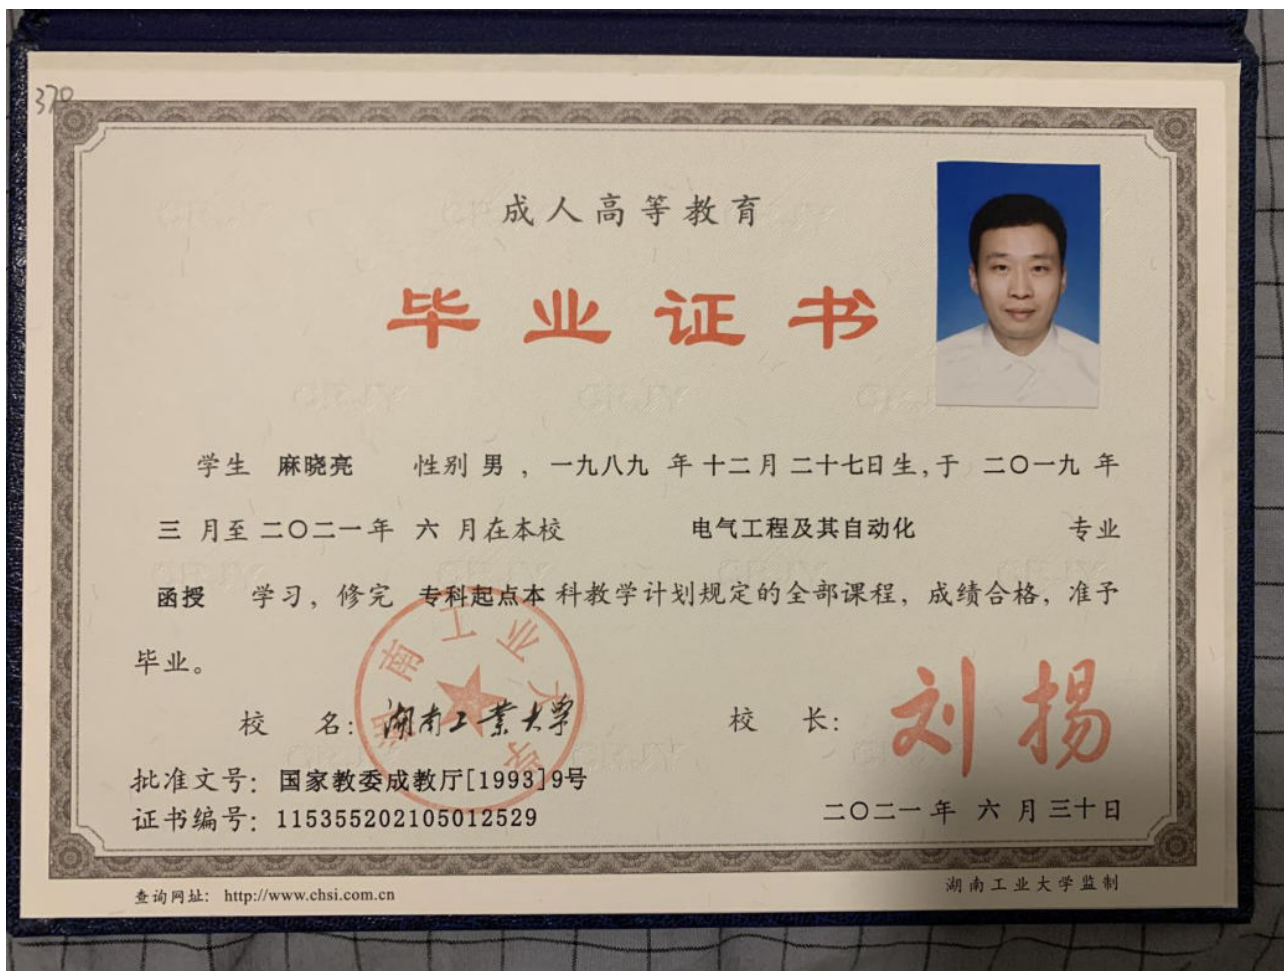 370
成人高等教育
毕业证书
学生 麻晓亮 性别 男 ，一九八九 年 十二月 二十七日生,于 二〇一九 年
三 月至 二〇二一年 六 月在本校 电气工程及其自动化 专业
函授 学习，修完 专科起点本 科教学计划规定的全部课程，成绩合格，准予
毕业。
校 名：湖南工業大学 校 长：刘扬
湖南工业大学
批准文号：国家教委成教厅[1993]9号
证书编号：115355202105012529
二〇二一 年 六 月 三十日
查询网址：http://www.chsi.com.cn
湖南工业大学监制